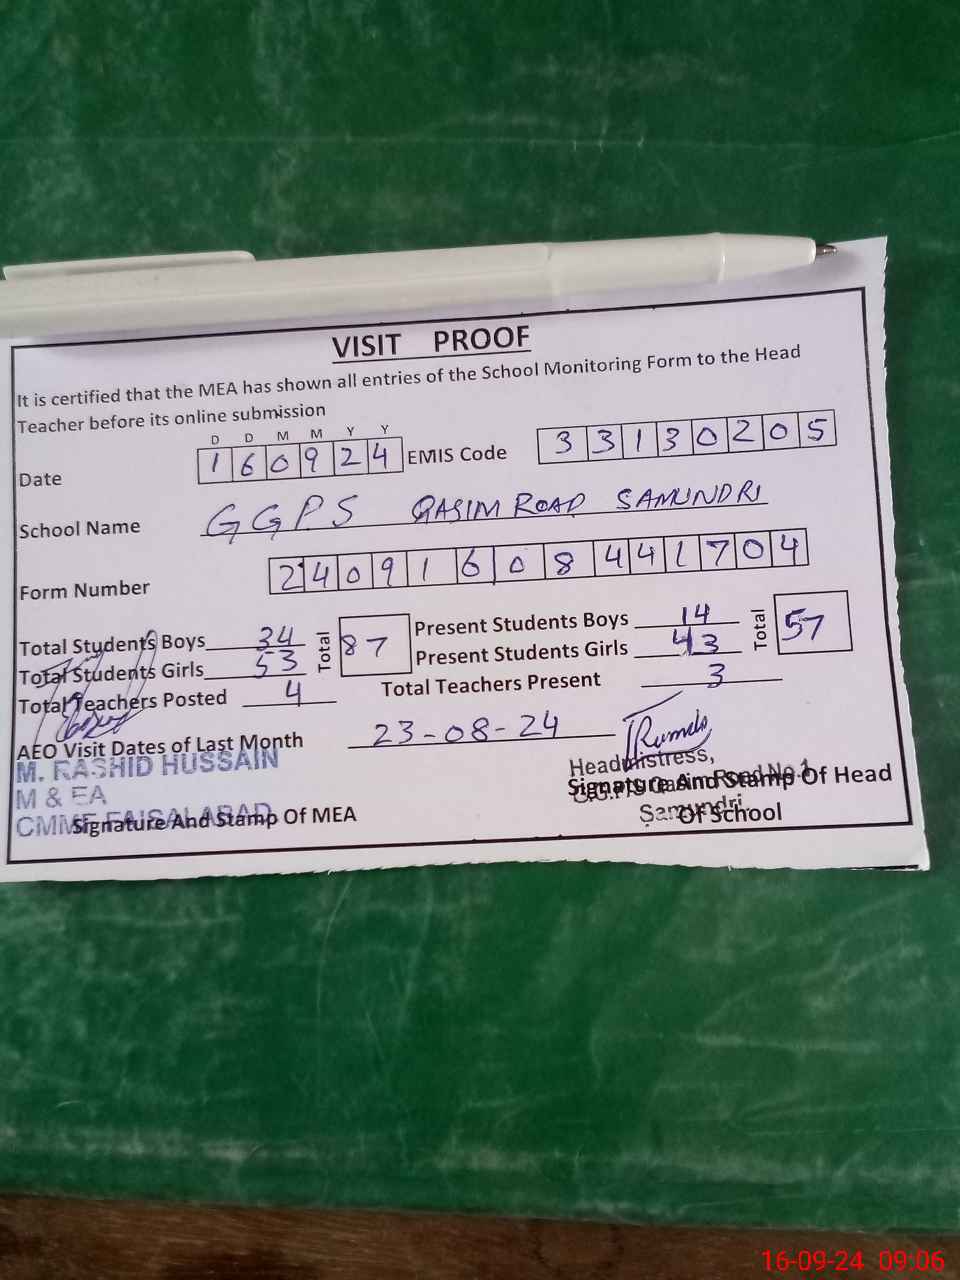 VISIT PROOF
It is certified that the MEA has shown all entries of the School Monitoring Form to the Head
Teacher before its online submission
D D M M Y Y
Date 160924 EMIS Code 33130205
School Name GGPS QASIM ROAD SAMUNDRI
Form Number 24091608441704
Total Students Boys 34 Total 87 Present Students Boys 14 Total 57
Total Students Girls 53 Present Students Girls 43
Total Teachers Posted 4 Total Teachers Present 3
AEO Visit Dates of Last Month 23-08-24
M. RASHID HUSSAIN
M & EA
CMMF FAISALABAD
Signature And Stamp Of MEA
Headmistress,
G.G.P.S Qasim Road No.1
Samundri.
Signature And Stamp Of Head
Of School
16-09-24 09:06